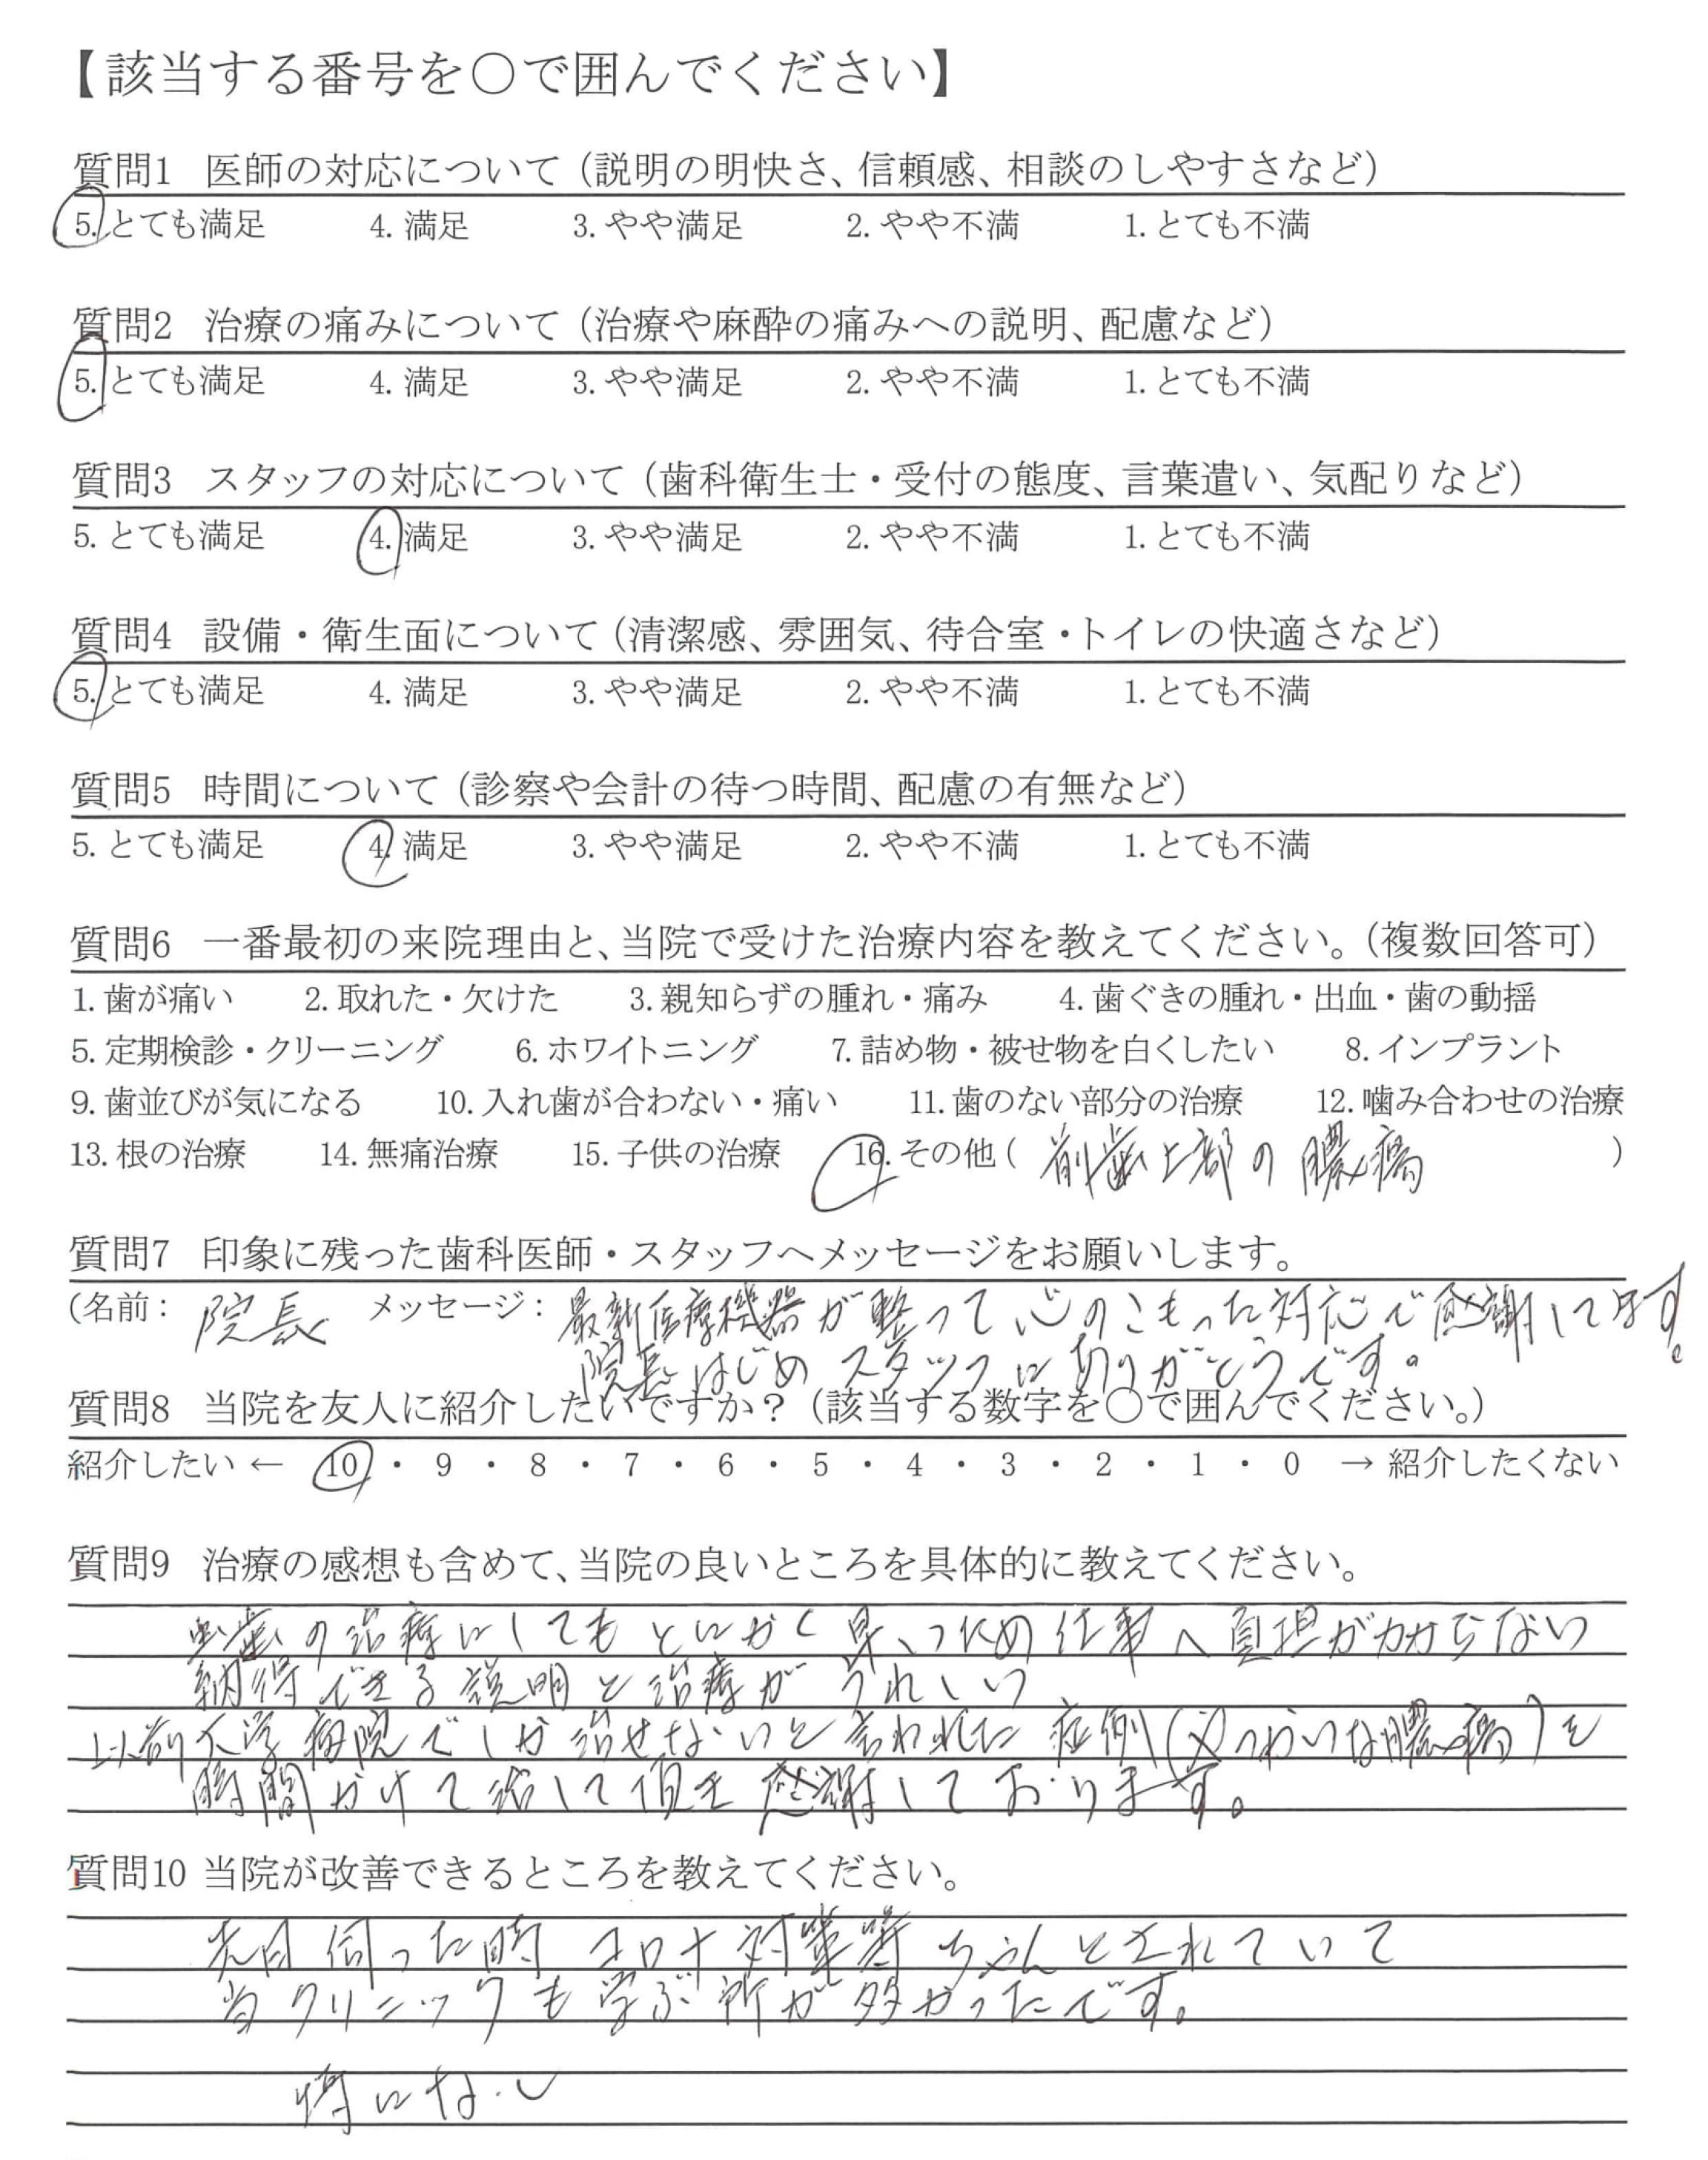 【該当する番号を○で囲んでください】
質問1 医師の対応について（説明の明快さ、信頼感、相談のしやすさなど）
5. とても満足 4. 満足 3. やや満足 2. やや不満 1. とても不満
質問2 治療の痛みについて（治療や麻酔の痛みへの説明、配慮など）
5. とても満足 4. 満足 3. やや満足 2. やや不満 1. とても不満
質問3 スタッフの対応について（歯科衛生士・受付の態度、言葉遣い、気配りなど）
5. とても満足 4. 満足 3. やや満足 2. やや不満 1. とても不満
質問4 設備・衛生面について（清潔感、雰囲気、待合室・トイレの快適さなど）
5. とても満足 4. 満足 3. やや満足 2. やや不満 1. とても不満
質問5 時間について（診察や会計の待つ時間、配慮の有無など）
5. とても満足 4. 満足 3. やや満足 2. やや不満 1. とても不満
質問6 一番最初の来院理由と、当院で受けた治療内容を教えてください。（複数回答可）
1. 歯が痛い 2. 取れた・欠けた 3. 親知らずの腫れ・痛み 4. 歯ぐきの腫れ・出血・歯の動揺
5. 定期検診・クリーニング 6. ホワイトニング 7. 詰め物・被せ物を白くしたい 8. インプラント
9. 歯並びが気になる 10. 入れ歯が合わない・痛い 11. 歯のない部分の治療 12. 噛み合わせの治療
13. 根の治療 14. 無痛治療 15. 子供の治療 16. その他（前歯上部の膿瘍）
質問7 印象に残った歯科医師・スタッフへメッセージをお願いします。
（名前：院長 メッセージ：最新医療機器が整って心のこもった対応で感謝してます。
院長はじめスタッフにありがとうです。
質問8 当院を友人に紹介したいですか？（該当する数字を○で囲んでください。）
紹介したい ← 10 ・ 9 ・ 8 ・ 7 ・ 6 ・ 5 ・ 4 ・ 3 ・ 2 ・ 1 ・ 0 → 紹介したくない
質問9 治療の感想も含めて、当院の良いところを具体的に教えてください。
虫歯の治療にしてもとにかく早いため仕事へ負担がかからない
納得できる説明と治療がうれしい
以前大学病院でしか治せないと言われた症例（やっかいな膿瘍）を
時間かけて治して頂き感謝しております。
質問10 当院が改善できるところを教えてください。
先日伺った時コロナ対策等ちゃんとされていて
当クリニックも学ぶ所が多かったです。
特になし